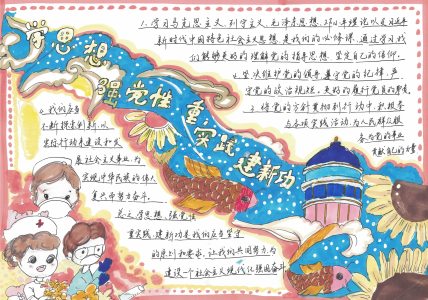 学思想 强党性 重实践 建新功
1. 学习马克思主义、列宁主义、毛泽东思想、邓小平理论以及习近平
新时代中国特色社会主义思想是我们的必修课，通过学习我
们能够更好的理解党的指导思想，坚定自己的信仰。
2. 坚决维护党的领导 遵守党的纪律，严
守党的政治规矩，更好的履行党员的职责
3. 将党的方针贯彻到行动中，积极参
与各项实践活动，为人民群众服
务为党的事业
贡献自己的力量
4. 我们应当
创新，以
实际行动来建设和发
展社会主义事业，为
实现中华民族的伟大
复兴而努力奋斗。
总之，学思想、强党性
重实践、建新功是我们应当坚定
的原则和要求，让我们共同努力，为
建设一个社会主义现代化强国奋斗